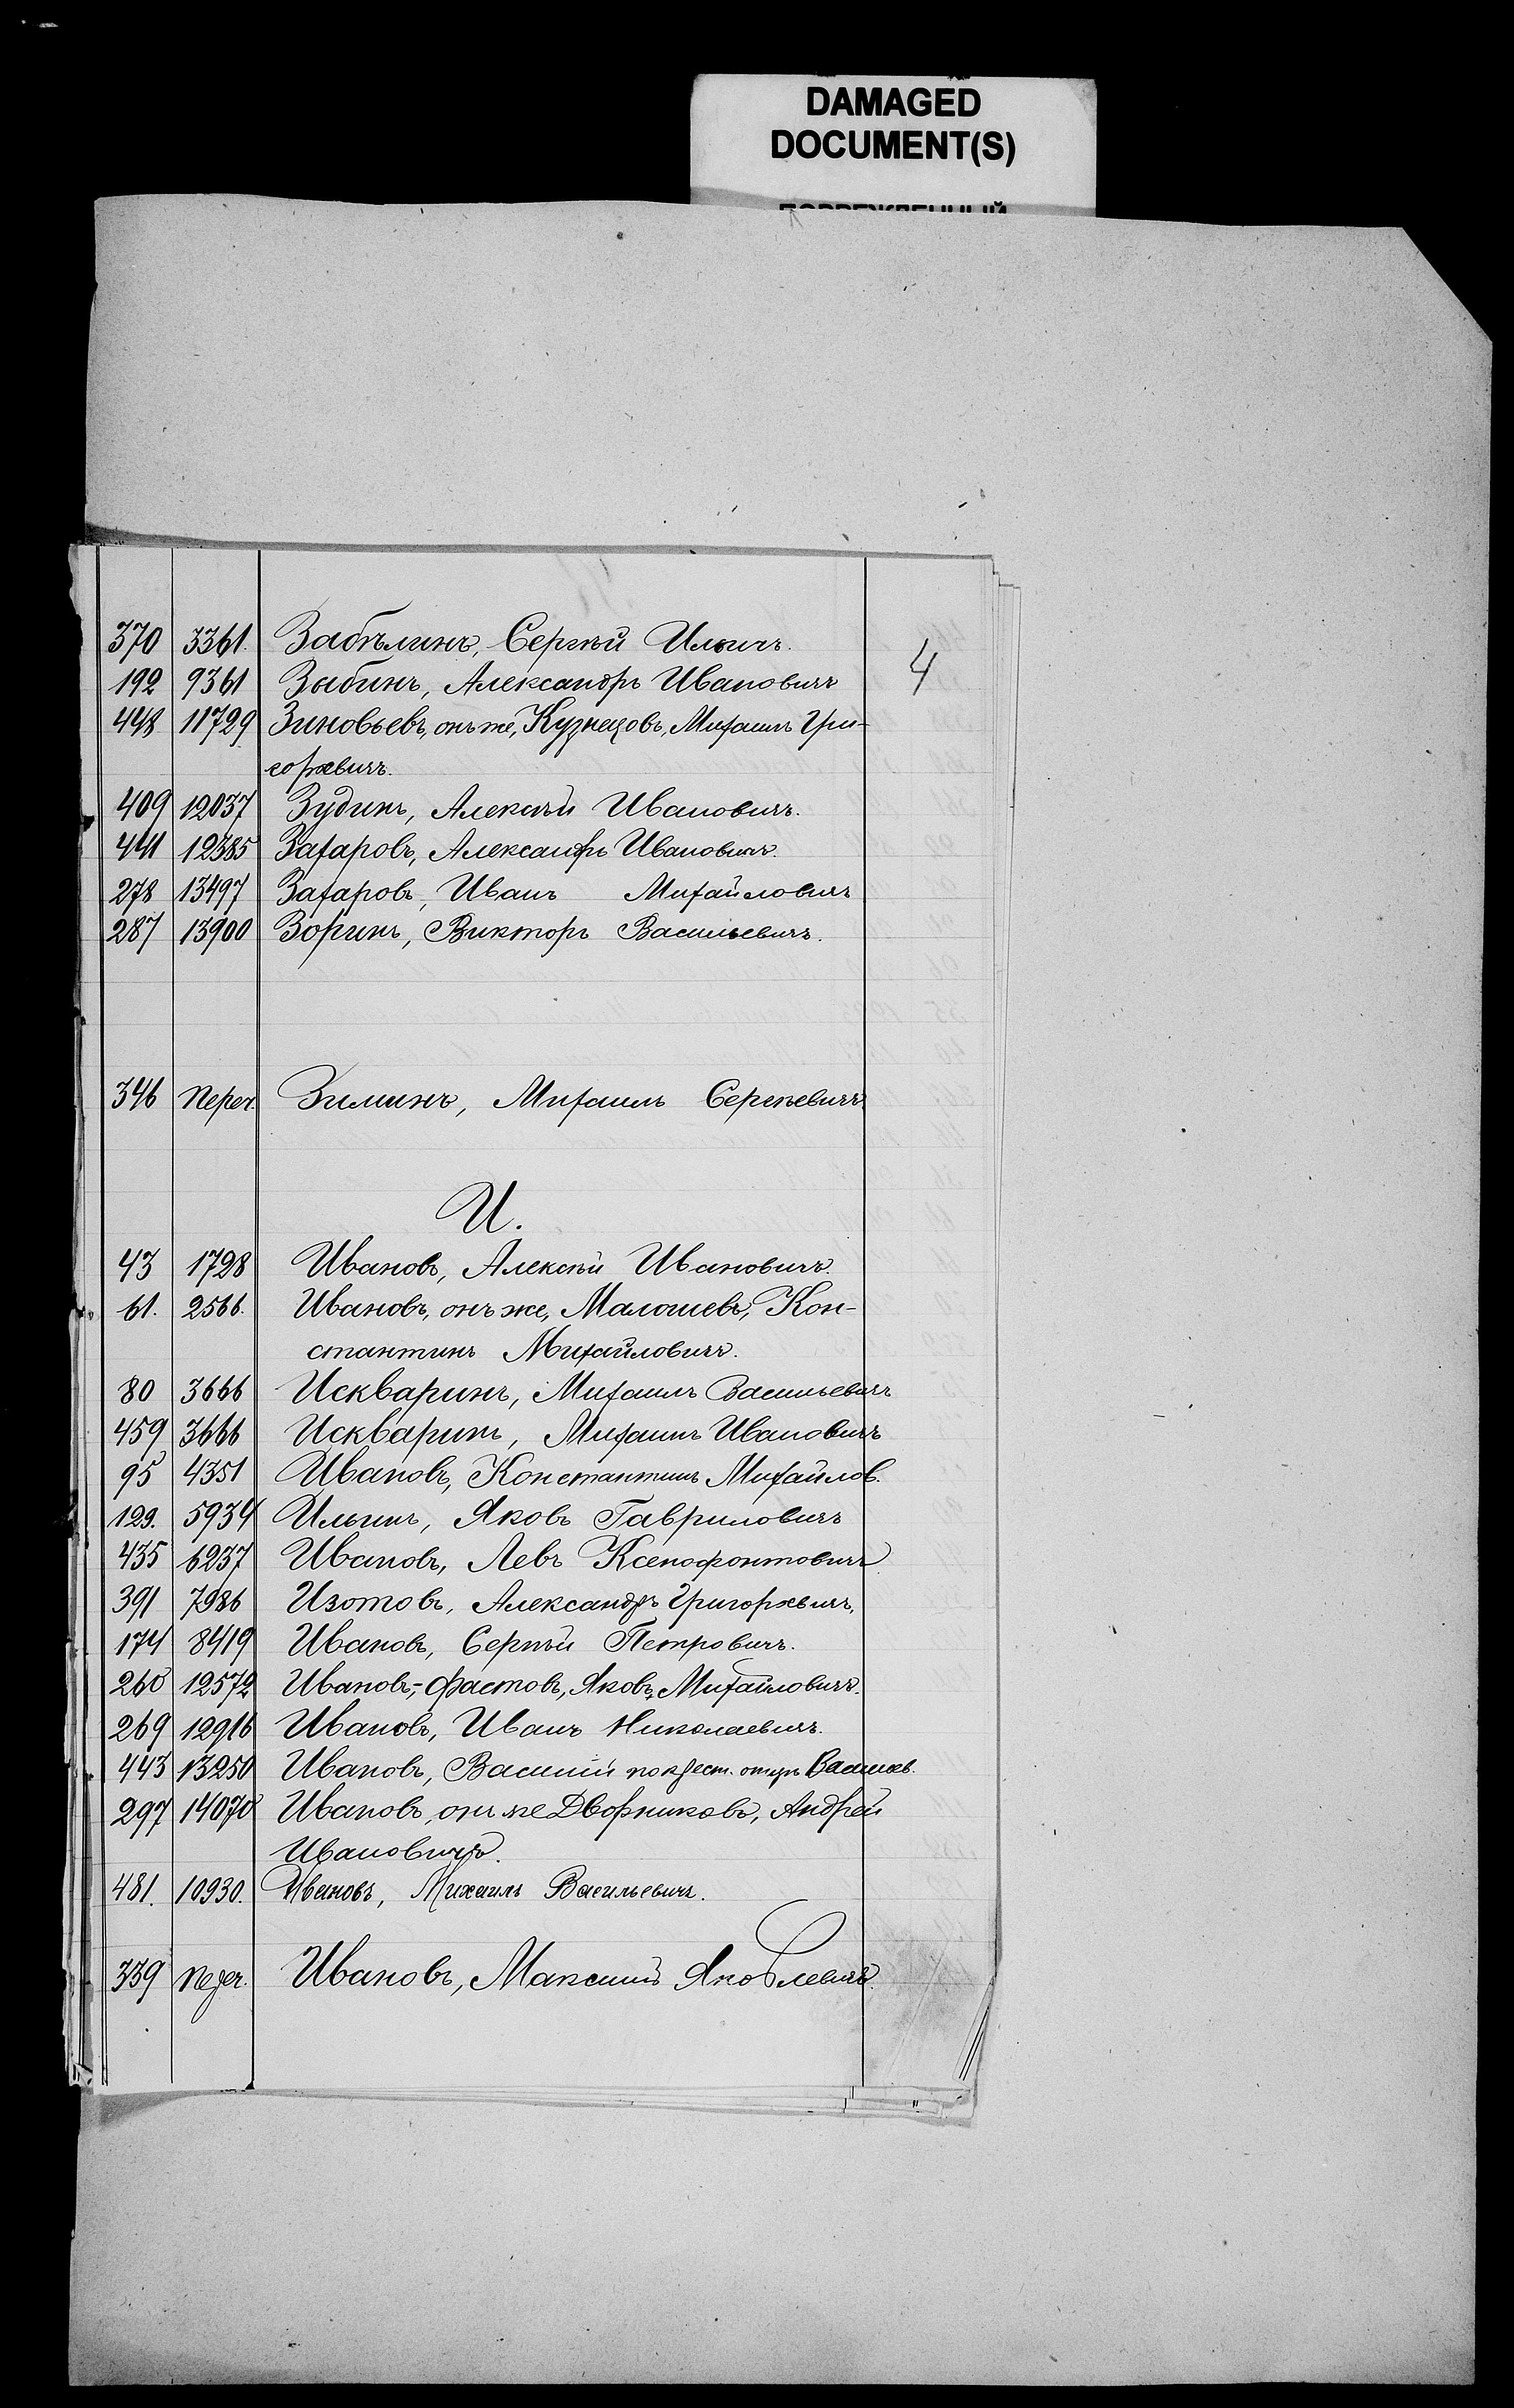 DAMAGED
DOCUMENT(S)
4
370 3361. Забѣлинъ, Сергѣй Ильичъ.
192 9361 Зыбинъ, Александръ Ивановичъ
448 11729 Зиновьевъ, онъ же, Кузнецовъ, Михаилъ Гри-
горьевичъ.
409 12037 Зудинъ, Алексѣй Ивановичъ.
441 12385 Захаровъ, Александръ Ивановичъ.
278 13497 Захаровъ, Иванъ Михайловичъ
287 13900 Зоринъ, Викторъ Васильевичъ.
346 Переч. Зиминъ, Михаилъ Сергѣевичъ.
И.
43 1728 Ивановъ, Алексѣй Ивановичъ.
61. 2566. Ивановъ, онъ же, Малошевъ, Кон-
стантинъ Михайловичъ.
80 3666 Искваринъ, Михаилъ Васильевичъ
459 3666 Искваринъ, Михаилъ Ивановичъ
95 4351 Ивановъ, Константинъ Михайлов.
129. 5934 Ильинъ, Яковъ Гавриловичъ
435 6237 Ивановъ, Левъ Ксенофонтовичъ.
391 7986 Изотовъ, Александръ Григорьевичъ.
174 8419 Ивановъ, Сергѣй Петровичъ.
260 12572 Ивановъ-Фастовъ, Яковъ Михайловичъ.
269 12916 Ивановъ, Иванъ Николаевичъ.
443 13250 Ивановъ, Василій по крест. отцу Васильев.
297 14070 Ивановъ, онъ же Дворниковъ, Андрей
Ивановичъ.
481. 10930. Ивановъ, Михаилъ Васильевичъ.
339 Переч. Ивановъ, Максимъ Яковлевичъ.